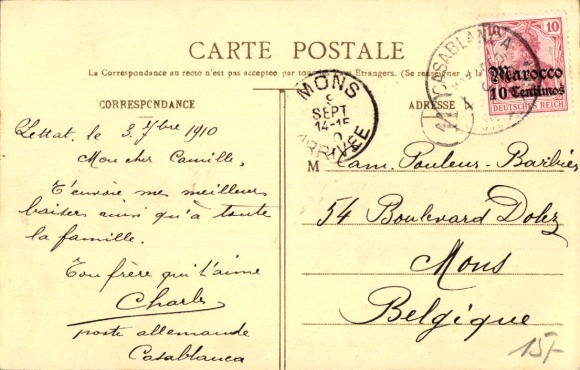 CARTE POSTALE
La Correspondance au recto n'est pas acceptée par tous les Pays Etrangers. (Se renseigner à la
CORRESPONDANCE
ADRESSE
MONS
9
SEPT
14-15
ARRIVEE
CASABLANCA
10
Marocco
10 Centimos
DEUTSCHES REICH
Settat, le 3 7bre 1910
Mon cher Camille,
T'envoie mes meilleurs
baisers ainsi qu'à toute
la famille.
Ton frère qui t'aime
Charles
poste allemande
Casablanca
M Cam. Pouleur-Barbier
54 Boulevard Dolez
Mons
Belgique
15/-